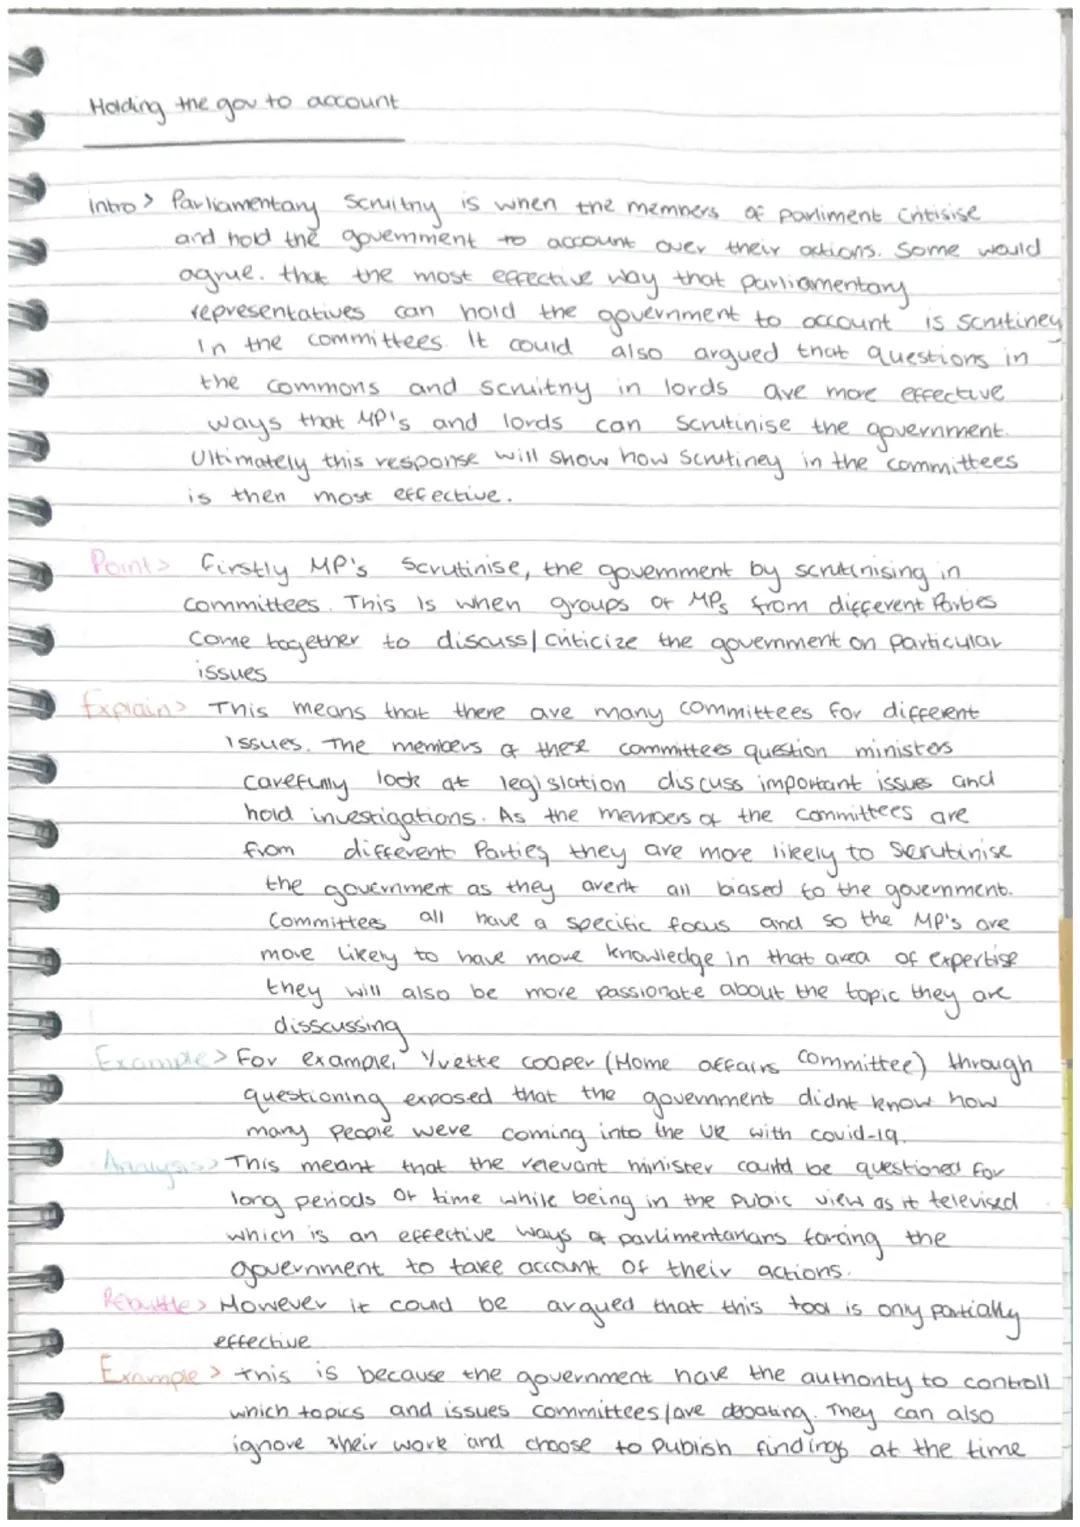 Holding the gov to account
intro > Parliamentary Scruitny is when the memners of parliment critisise
and hold the government to account over their actions. Some would
agrue. that the most effective way that parliamentary
representatives can hold the government to account is scrutiney
In the committees. It could also argued that questions in
the commons and scruitny in lords are more effective
ways that MP's and lords can scrutinise the government.
Ultimately this response will show how scrutiney in the committees
is then most effective.
Point > firstly MP's scrutinise, the government by scrutinising in
committees. This is when groups of MPs from different Parties
come together to discuss/criticize the government on particular
issues
Explain > This means that there are many committees for different
issues. The members of these committees question ministers
carefully look at legislation discuss important issues and
hold investigations. As the members of the committees are
from different Parties they are more likely to scrutinise
the government as they arent all biased to the government.
Committees all have a specific focus and so the MP's are
more likely to have more knowledge in that area of expertise
they will also be more passionate about the topic they are
disscussing
Example > For example, Yvette cooper (Home affairs committee) through
questioning exposed that the government didnt know how
many people were coming into the UK with covid-19.
Analysis > This meant that the relevant minister could be questioned for
long periods of time while being in the public view as it televised
which is an effective ways of parlimentarians forcing the
government to take account of their actions.
Rebuttle > However it could be argued that this tool is only partially
effective
Example > this is because the government have the authority to controll
which topics and issues committees/are debating. They can also
ignore their work and choose to publish findings at the time